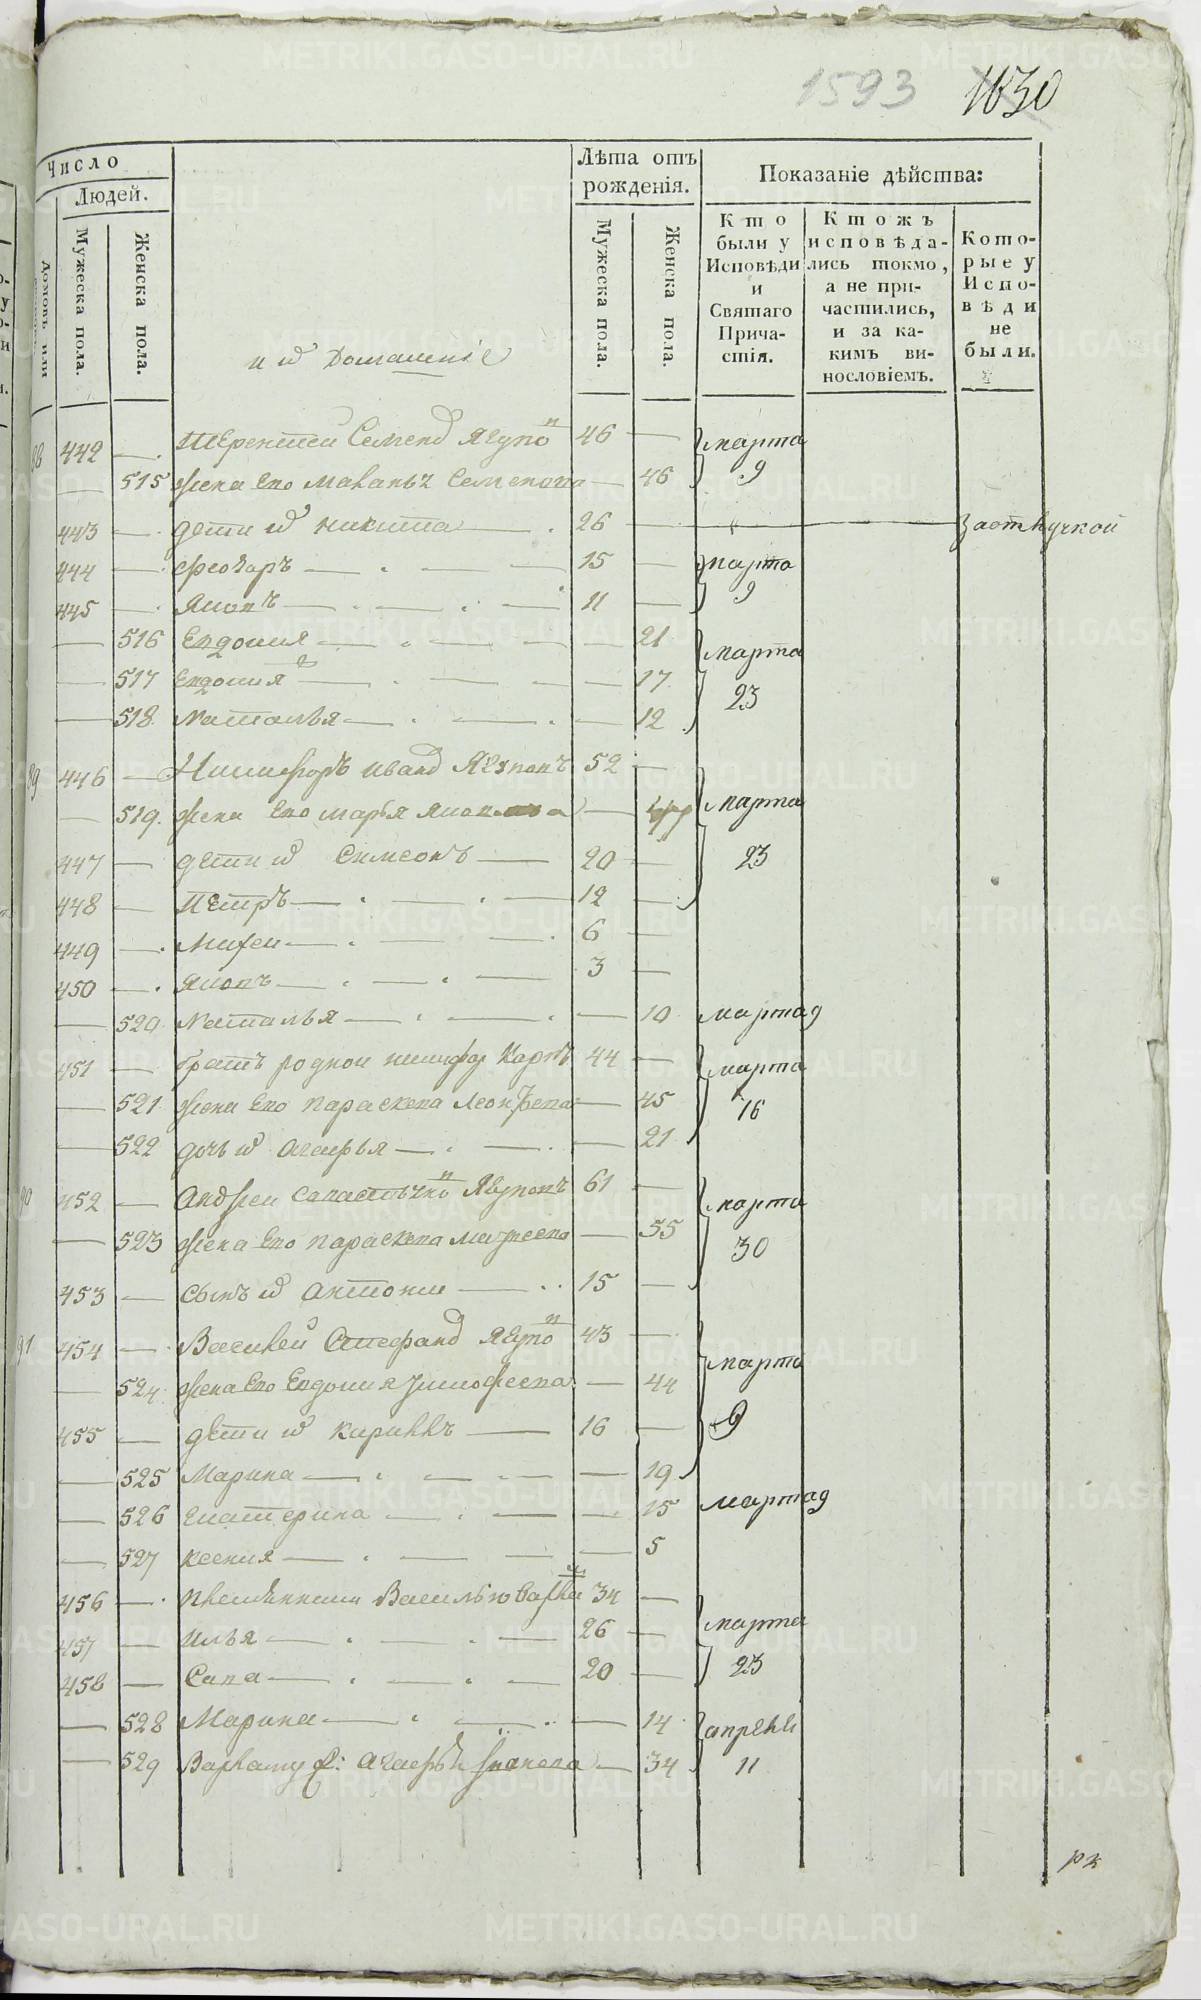 1593 1630
Число
Людей.
Домовъ или
Мужеска пола.
Женска пола.
Лѣта отъ
рожденія.
Мужеска пола.
Женска пола.
Показаніе дѣйства:
Кто
были у
Исповѣди
и
Святаго
Прича-
стія.
Ктожъ
исповѣда-
лись токмо,
а не при-
частились,
и за ка-
кимъ ви-
нословіемъ.
Кото-
рые у
Испо-
вѣди
не
были.
и ѿ Домашніе
442 — Терентей Семено 46 — марта
— 515 жена Ево Маланья Семенова — 46 9
443 — дети ѿ никита — 26 — За отлучкой
444 — Феодаръ — 15 — марта
445 — Яковъ — 11 — 9
— 516 Евдокия — 21 марта
— 517 Евдокия — 17 23
— 518 Наталья — 12
89 446 — Никифоръ Ивано 52 — марта
— 519 жена Ево марья —
447 — дети ѿ Симеонъ — 20 — 23
448 — Петръ — 12 —
449 — Михеи — 6 —
450 — Яковъ — 3 —
— 520 Наталья — 10 марта 9
451 — братъ родной никифо Карпъ 44 — марта
— 521 жена Ево параскева Леонтьева — 45 16
— 522 дочь ѿ Агафья — 21
90 452 — Андреи 61 — марта
— 523 жена Ево параскева Матфеева — 55 30
453 — сынъ ѿ Антонии — 15 —
91 454 — Василеи Стефано 43 — марта
— 524 жена Ево Евдокия тимофеева — 44
455 — дети ѿ Кирилъ — 16 — 9
— 525 Марина — 19
— 526 Екатерина — 15 марта 9
— 527 Ксения — 5
456 — племянники Василью 34 —
457 — Илья — 26 — марта
458 — Сава — 20 — 23
— 528 Марина — 14 апреля
— 529 Варламу Агафья — 34 11
METRIKI.GASO-URAL.RU